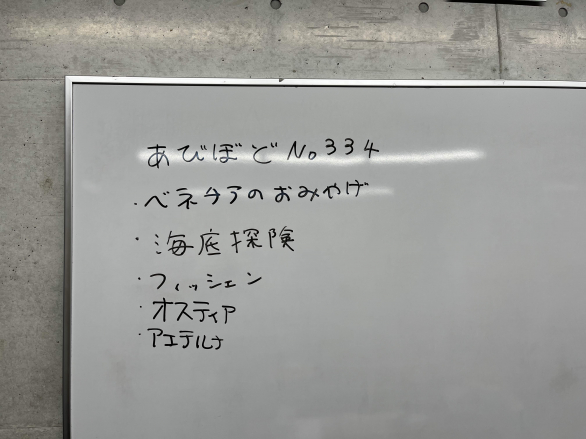 あびぼど No334
・ベネチアのおみやげ
・海底探険
・フィッシェン
・オスティア
・アエテルナ